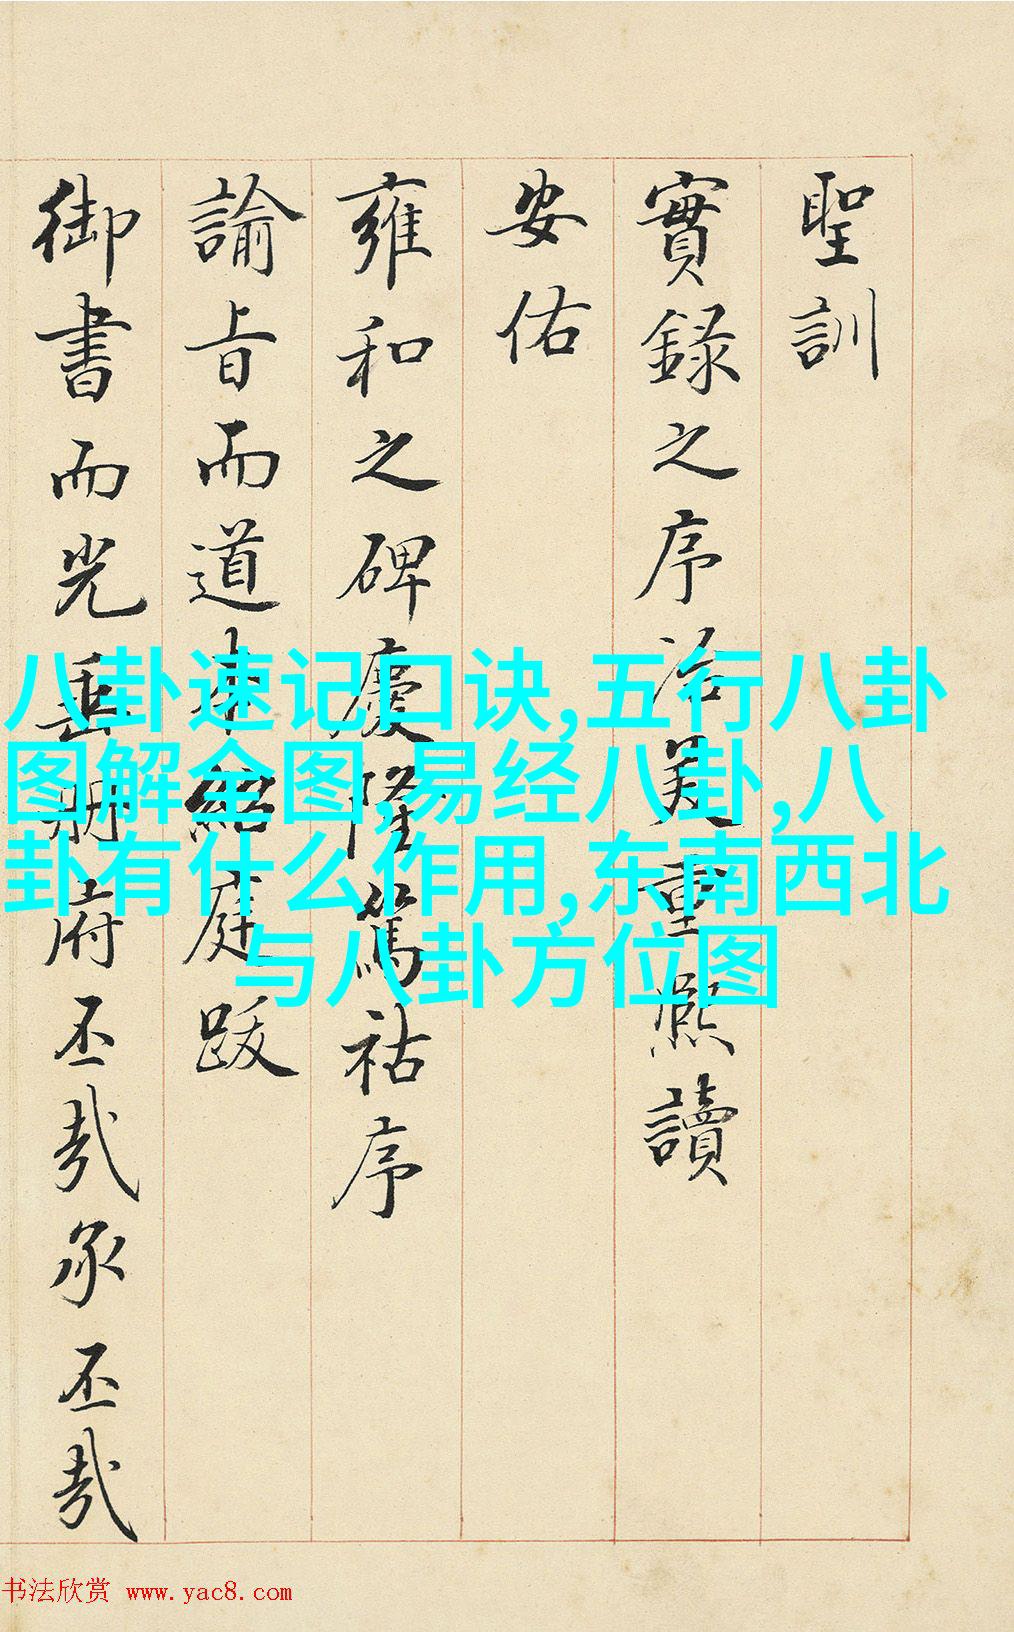 聖訓
實録之序治美重熙讀
安佑
雍和之碑慶隆篤祜序
諭旨而道本紹庭跋
御書而光垂册府丕哉承丕哉
八卦速记口诀,五行八卦
图解全图,易经八卦,八
卦有什么作用,东南西北
与八卦方位图
书法欣赏 www.yac8.com